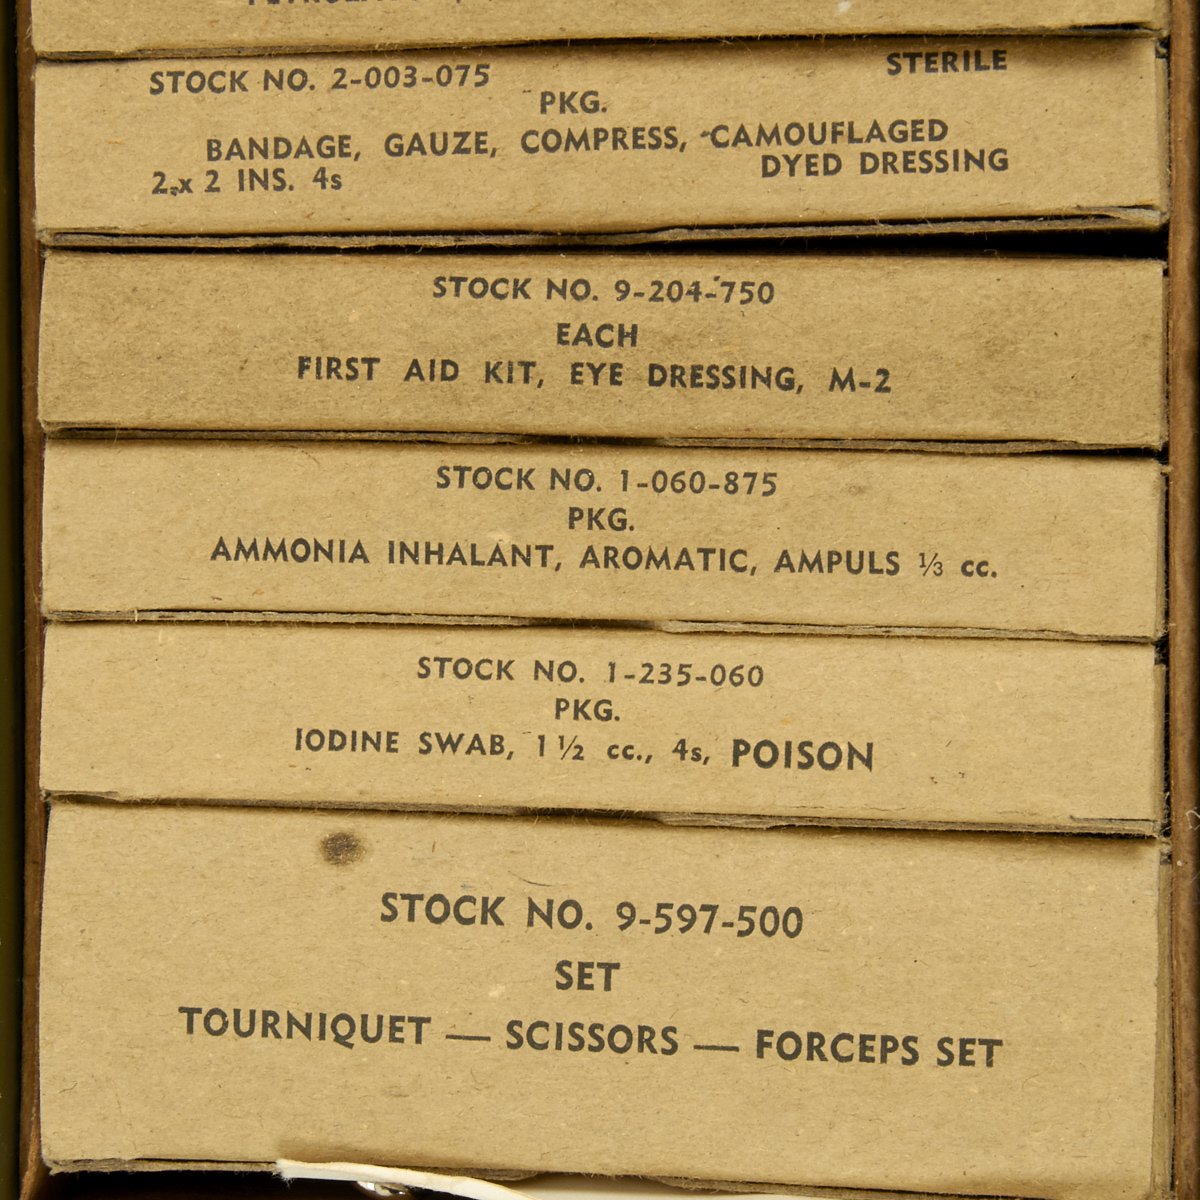 STOCK NO. 2-003-075 STERILE
PKG.
BANDAGE, GAUZE, COMPRESS, CAMOUFLAGED
DYED DRESSING
2 x 2 INS. 4s
STOCK NO. 9-204-750
EACH
FIRST AID KIT, EYE DRESSING, M-2
STOCK NO. 1-060-875
PKG.
AMMONIA INHALANT, AROMATIC, AMPULS ⅓ cc.
STOCK NO. 1-235-060
PKG.
IODINE SWAB, 1 ½ cc., 4s, POISON
STOCK NO. 9-597-500
SET
TOURNIQUET — SCISSORS — FORCEPS SET